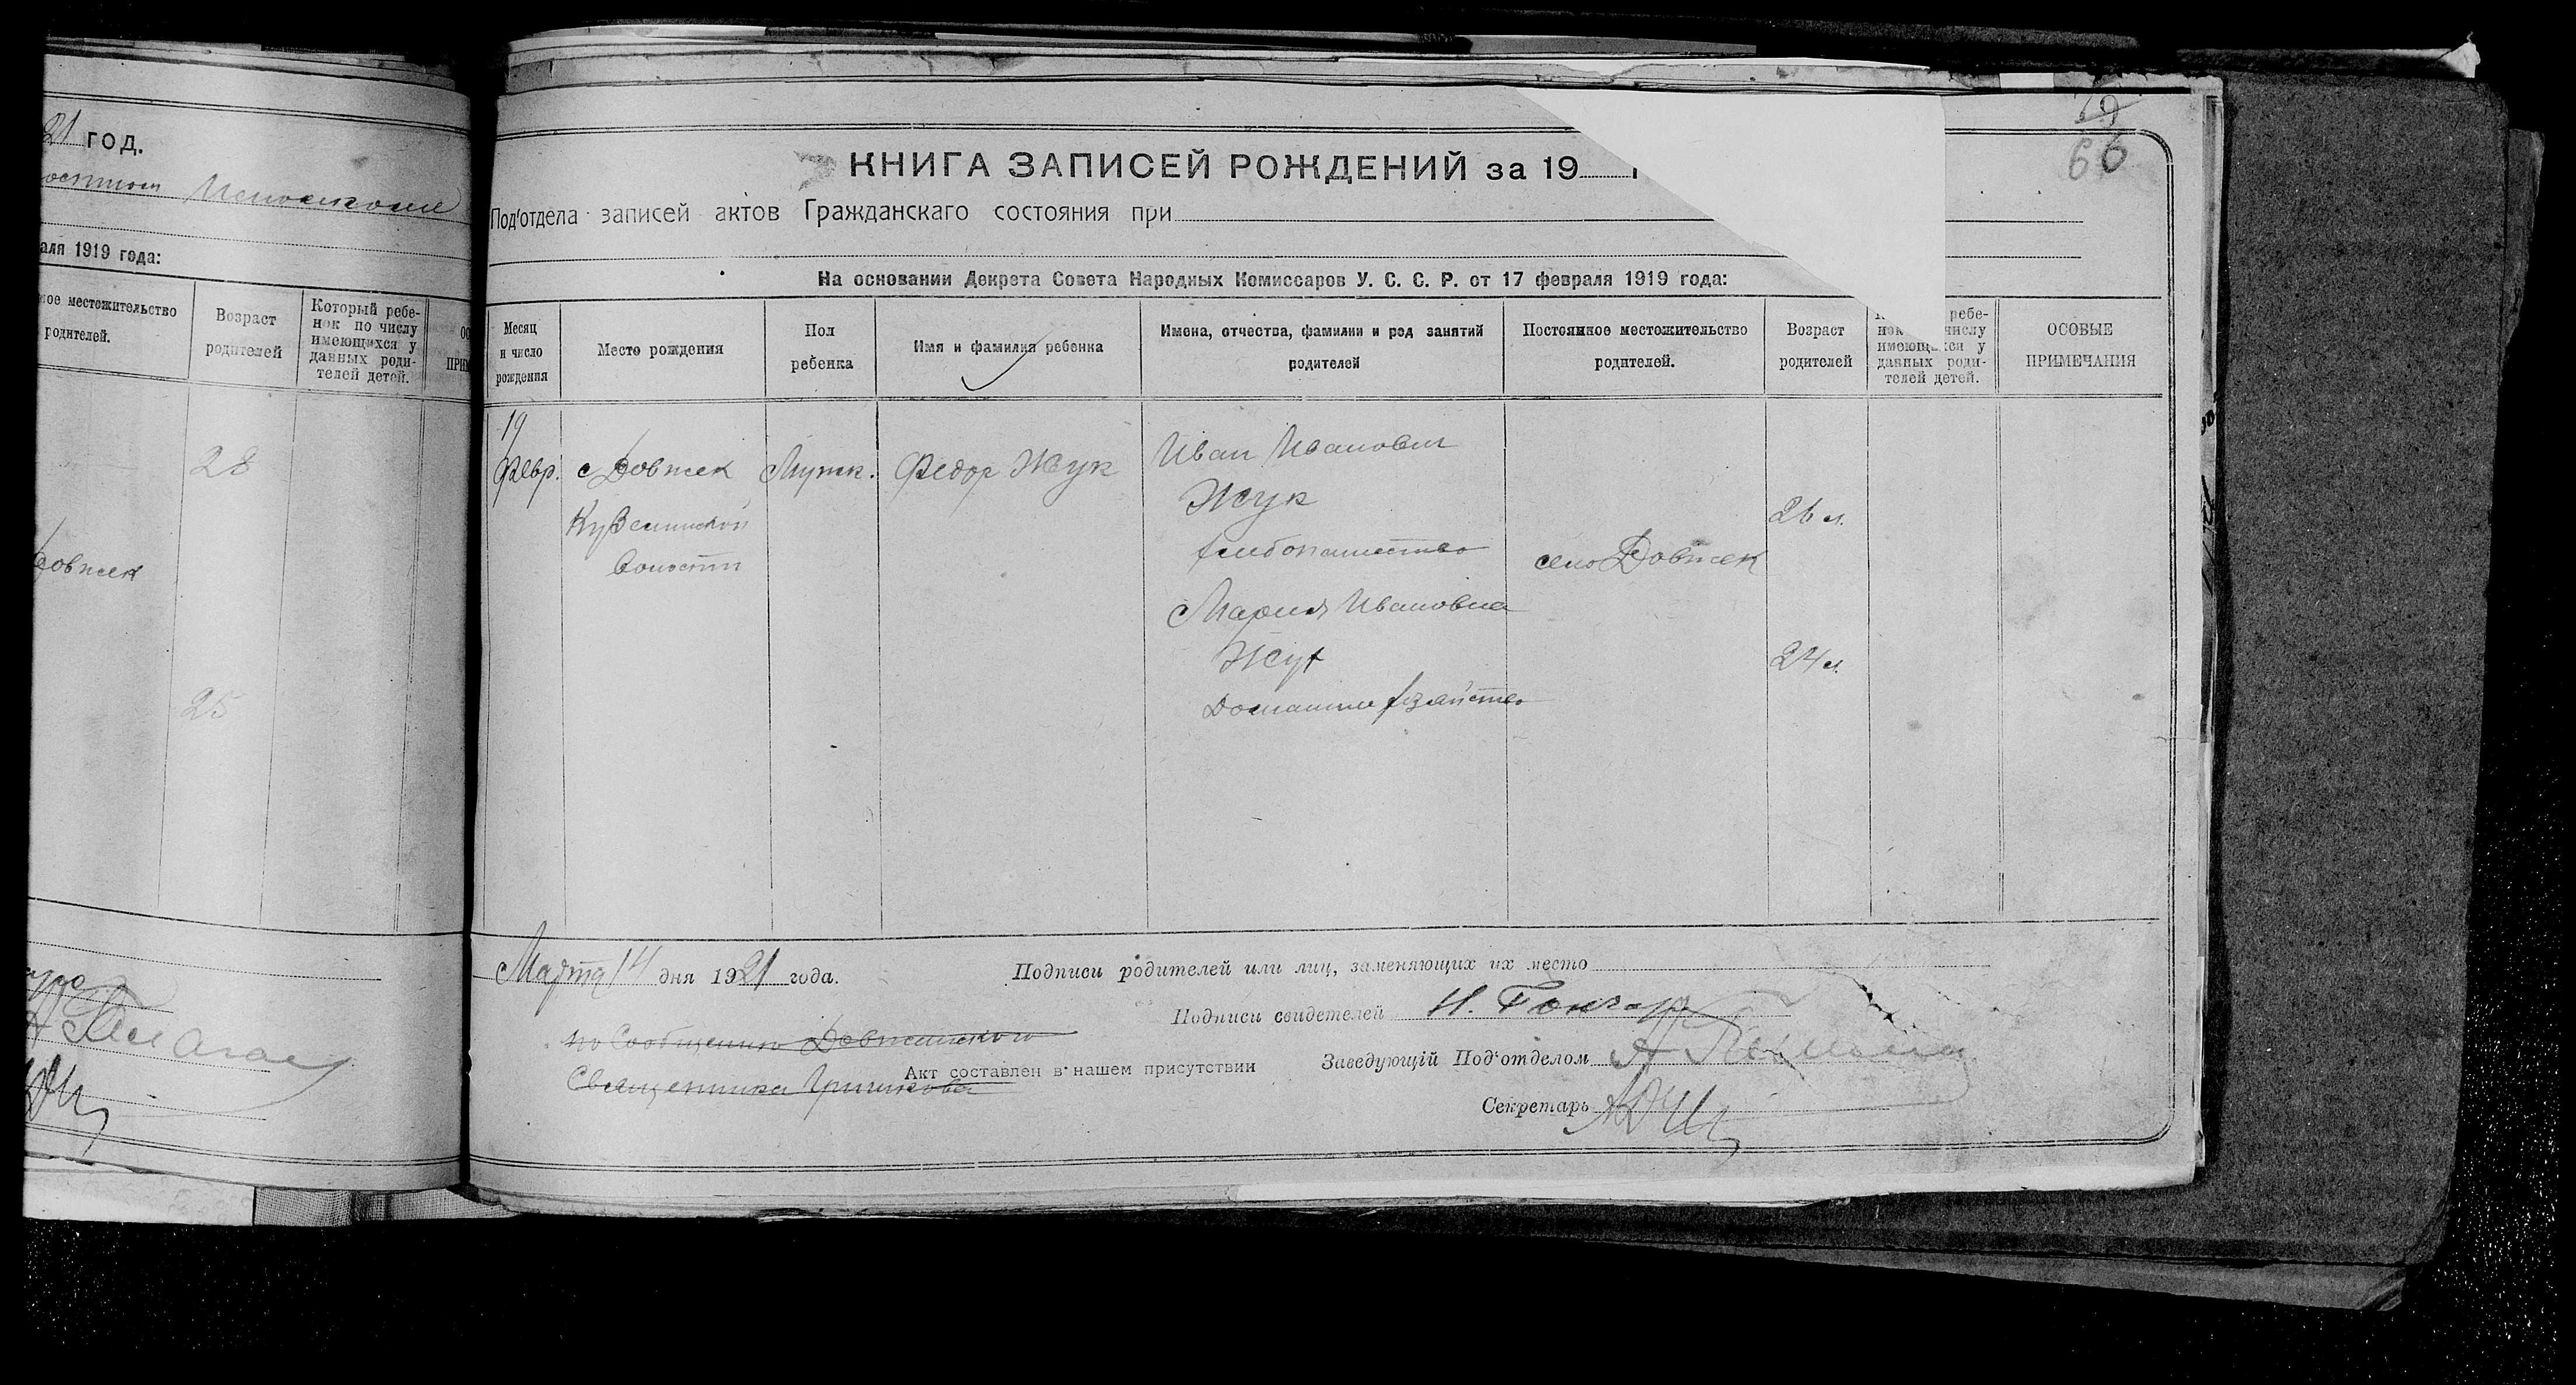 21 год.
аля 1919 года:
ное местожительство
родителей.
Возраст
родителей
Который ребе-
нок по числу
имеющихся у
данных роди-
телей детей.
28
Довжек
25
19
66
КНИГА ЗАПИСЕЙ РОЖДЕНИЙ за 19
Под'отдела записей актов Гражданскаго состояния при
На основании Декрета Совета Народных Комиссаров У. С. С. Р. от 17 февраля 1919 года:
Месяц
и число
рождения
Место рождения
Пол
ребенка
Имя и фамилия ребенка
Имена, отчества, фамилии и род занятий
родителей
Постоянное местожительство
родителей.
Возраст
родителей
ребе-
нок числу
имеющихся у
данных роди-
телей детей.
ОСОБЫЕ
ПРИМЕЧАНИЯ
19
Февр.
с Довжек
волости
Мужк.
Федор Жук
Иван Иванович
Жук
хлебопашество
Мария Ивановна
Жук
домашнее хозяйство
село Довжек
26 л.
24 л.
Марта 14 дня 1921 года.
по сообщению Довжанского
Священника
Акт составлен в нашем присутствии
Подписи родителей или лиц, заменяющих их место
Подписи свидетелей Н. Гончар
Заведующій Под'отделом
Секретарь